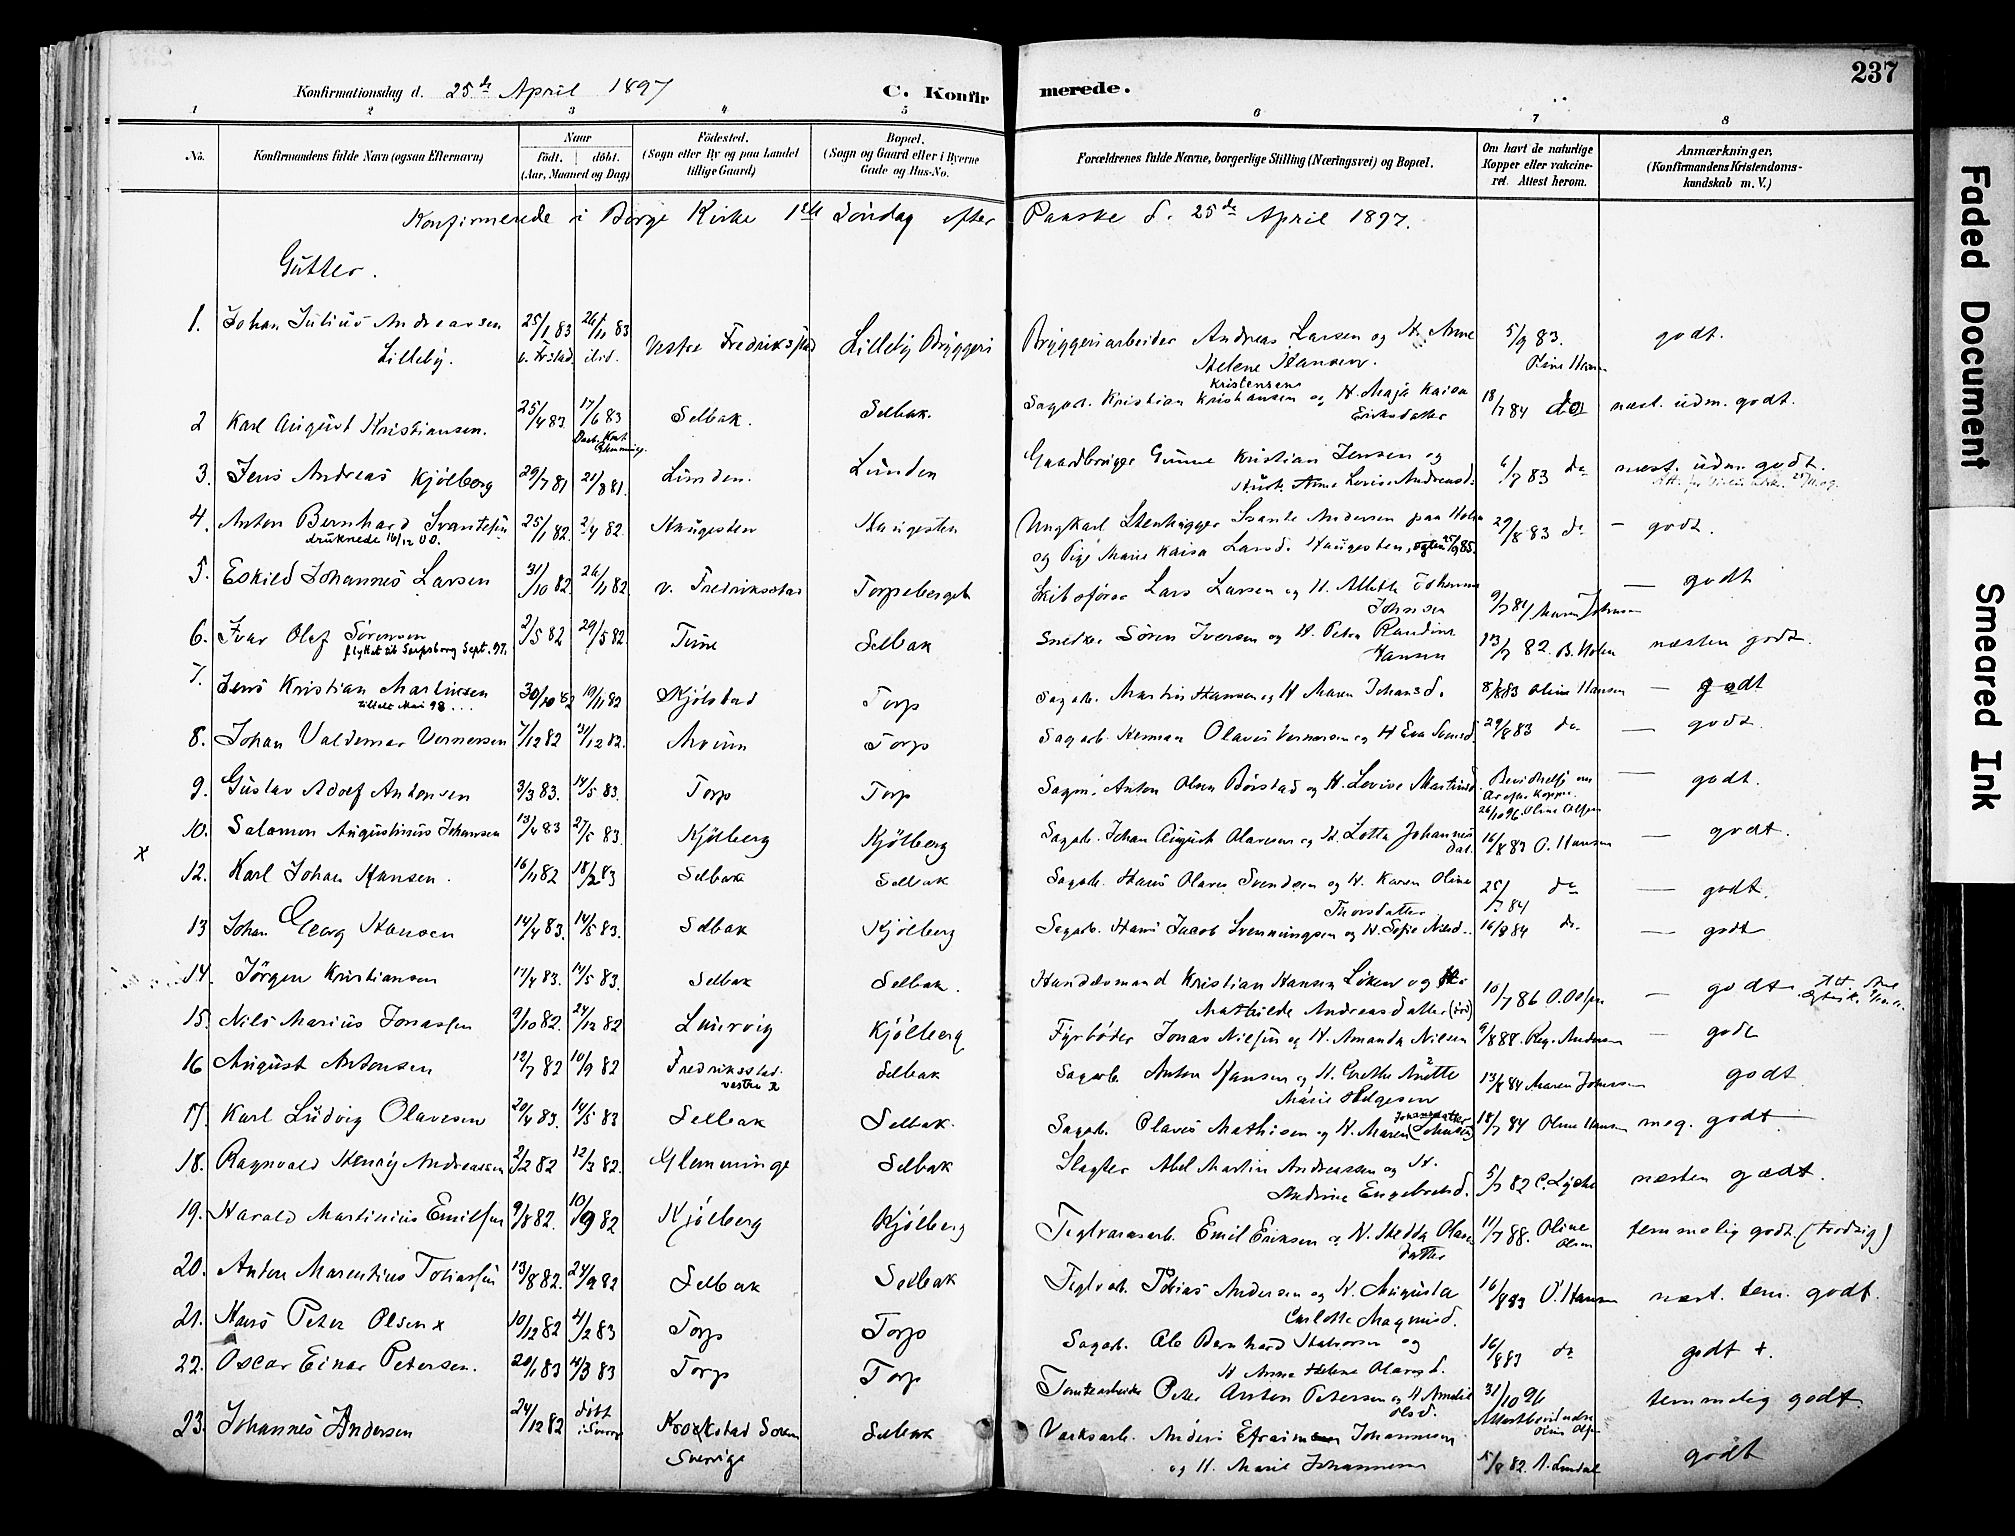 237
Konfirmationsdag d. 25de April 1897
C. Konfir merede.
1 2 3 4 5 6 7 8
No.
Konfirmandens fulde Navn (ogsaa Efternavn)
Naar
født. døbt.
(Aar, Maaned og Dag)
Fødested.
(Sogn eller By og paa Landet
tillige Gaard)
Bopæl.
(Sogn og Gaard eller i Byerne
Gade og Hus-No.
Forældrenes fulde Navne, borgerlige Stilling (Næringsvei) og Bopæl.
Om havt de naturlige
Kopper eller vakcine-
ret. Attest herom.
Anmærkninger,
(Konfirmandens Kristendoms-
kundskab m. V.)
Konfirmerede i Borge Kirke 1ste Søndag efter Paaske d. 25de April 1897.
Gutter.
1. Johan Julius Andreassen 25/1 83 26/11 83 Vestre Fredrikstad Lilleby Bryggeri Bryggeriarbeider Andreas Larsen og H. Anne 5/9 83. godt.
Lilleby.
Helene Hansen.
2 Karl August Kristiansen. 25/4 83 17/6 83 Selbak. Selbak. Sagarb. Kristian Kristiansen og H. Maja Kaisa 18/7 84 do næst. udm. godt.
Kristensen
Eriksdatter
3. Jens Andreas Kjølberg 29/7 81 21/8 81. Lunden. Lunden Gaardbruger Gunne Kristian Jensen og 6/7 83 do næst. udm. godt.
Hust. Anne Lovise Andreasd.
4. Anton Bernhard Svantesen 25/1 82. 2/4 82. Haugesten Haugesten Ungkarl Stenhugger Svante Andersen paa Holm 29/8 83 do — godt.
druknede 16/12 00.
og Pige Marie Kaisa Larsd. Haugesten,
5. Eskild Johannes Larsen 31/10 82. 26/11 82. v. Fredriksstad Torpeberget Skibsfører Lars Larsen og H. — godt
6. Ivar Olaf Sørensen 2/5 82 29/5 82 Tune Selbak Snedker Søren Iversen og H. Petra Randine 13/7 82. B. Holm næsten godt.
flyttet til Sarpsborg Sept. 97.
Hansen
7. Jens Kristian Martinsen 30/10 82 19/11 82 Kjølstad Torp Sagarb. Martin Hansen og H Maren Johansd. 8/8 83 Oline Hansen — godt
8. Johan Valdemar Vernersen 7/12 82 31/12 82. Torp Sagarb. Herman Olaves Vernersen og H Eva 29/8 83 do — godt.
9. Gustav Adolf Antonsen 3/3 83. 14/5 83. Torp Torp Sagm. Anton Olsen Børstad og H. Lovise — godt.
26/10 96. Oline Olsen
10. Salomon Augustinus Johansen 13/4 83 27/5 83. Kjølberg Kjølberg Sagarb. Johan August Olavesen og H. Lotta Johannes 16/8 83 O. Hansen — godt.
dat.
x
12. Karl Johan Hansen. 16/11 82 18/2 83 Selbak Selbak Sagarb. Hans Olaves Svendsen og H. Karen Oline 25/7 84 do — godt.
Thorsdatter
13 Johan Georg Hansen 14/4 83. 14/5 83. Selbak Kjølberg Sagarb. Hans Jacob Svenningsen og H. Sofie 16/8 84 do — godt
14. Jørgen Kristiansen 17/4 83. 14/5 83. Selbak Selbak. Handelsmand Kristian Hansen Løken og H. 10/7 86 O. Olsen — godt
Mathilde Andreasdatter
15. Nils Marius Jonassen 9/10 82. 24/12 82 Laurvig Kjølberg Fyrbøder Jonas Nielsen og H. Amanda Nilsen — godt
16 August Antonsen 12/7 82 10/9 82 Fredriksstad. Selbak Sagarb. Anton Hansen og H. Grethe Anette 13/8 84 Maren Johansen godt.
vestre
Marie Helgesen
17. Karl Ludvig Olavesen 20/4 83. 14/5 83 Selbak Selbak. Sagarb. Olaves Mathisen og H. Maren (Johnsen) 18/7 84 Oline Hansen meg. godt.
18. Ragnvald Henry Andreassen 2/2 82 12/3 82. Glemminge Selbak Slagter Abel Martin Andreassen og H. 5/7 82 næsten godt.
Andrine Engebretsd.
19. Harald Martinius Emilsen 9/8 82. 10/9 82 Kjølberg Kjølberg Teglværksarb. Emil Eriksen og H. Hedda Olaves 11/7 88. Oline temmelig godt. (
datter
Olsen
20. Anton Marentius Tobiassen 13/8 82. 24/9 82 Selbak Selbak Teglvarb. Tobias Andersen og H. Augusta 16/8 83 O. Hansen næst. tem. godt.
Carlotte Magnusd.
21. Hans Peter Olsen x 10/12 82 4/2 83 Torp Torp Sagarb. Ole Bernhard og 16/8 83 do godt +.
H Anna Helene Olavesd.
22. Oscar Einar Petersen. 20/1 83 Torp Torp Tomtearbeider Peter Anton Petersen og H Amalie 31/10 96 temmelig godt
Olsd.
23. Johannes Andersen 24/12 82 døbt Krokstad Sogn Selbak Værksarb. Anders Efraim Johannesen godt
i Sverige
Sverige
og H. Marie Johannesen 5/8 82.
Faded Document
Smeared Ink